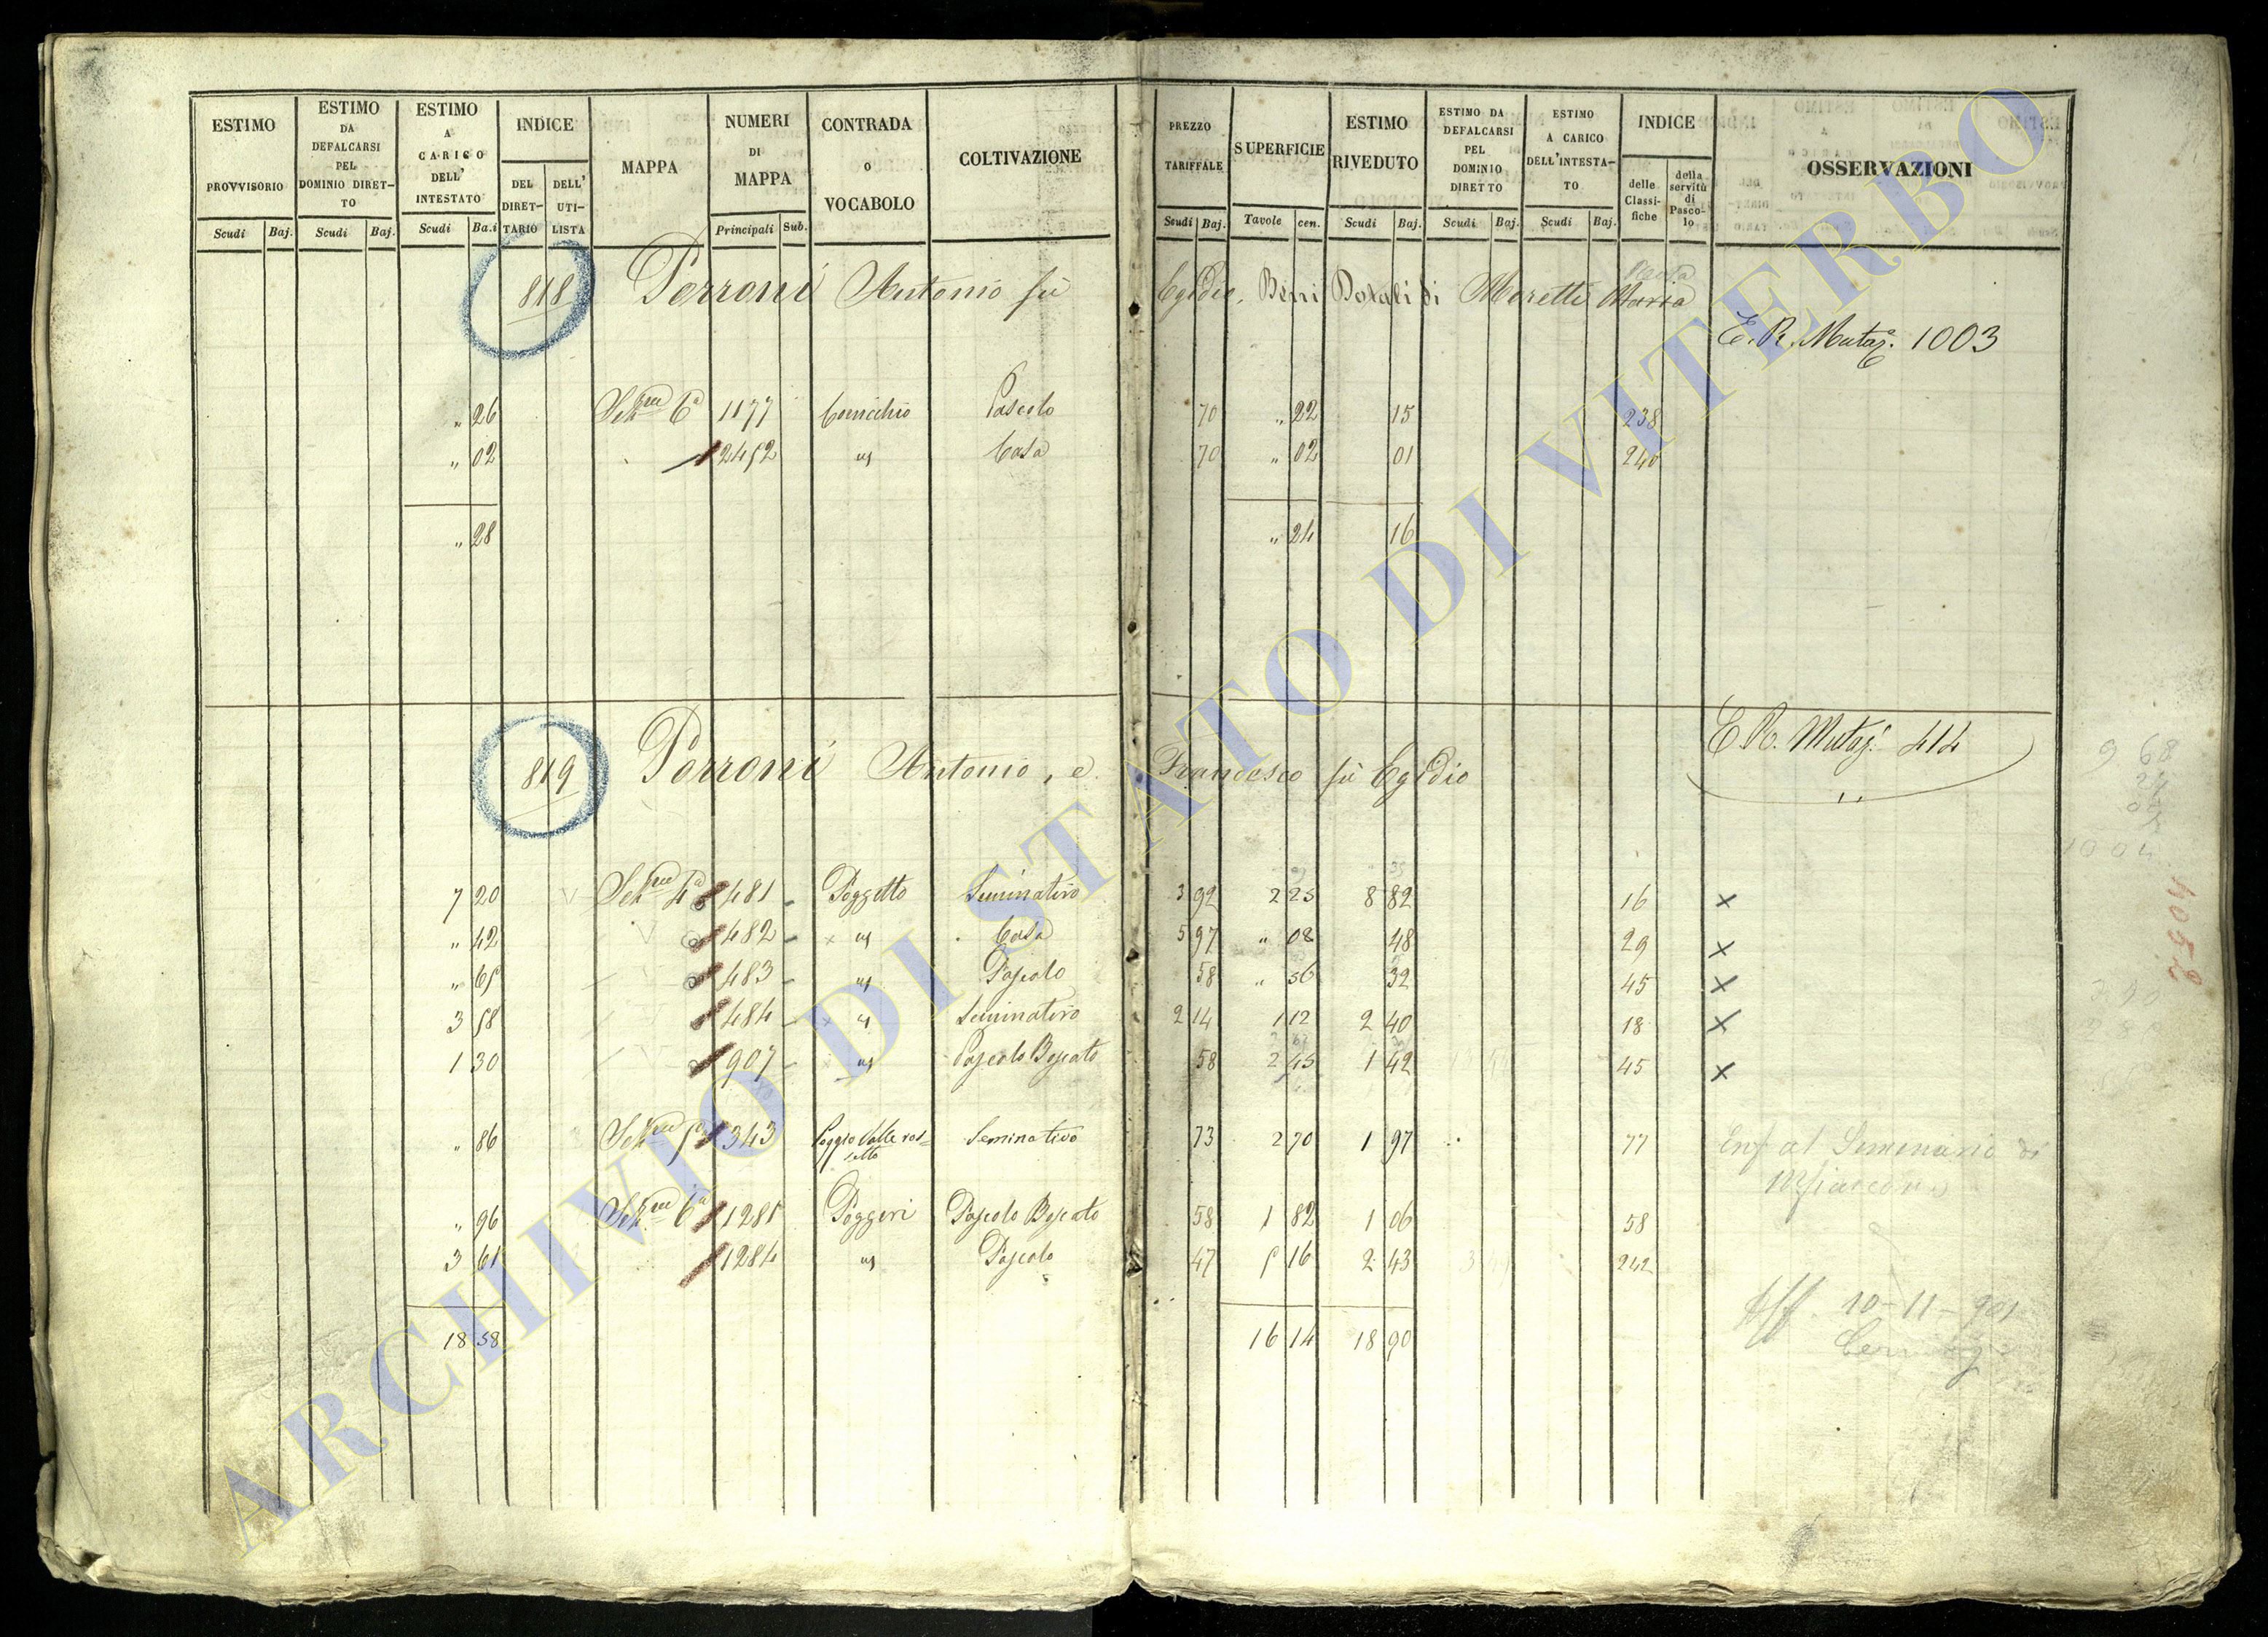 ESTIMO PROVVISORIO Scudi Baj.
ESTIMO DA DEFALCARSI PEL DOMINIO DIRET-TO Scudi Baj.
ESTIMO A CARICO DELL' INTESTATO Scudi Ba.i
INDICE DEL DIRET-TARIO DELL' UTI-LISTA
MAPPA
NUMERI DI MAPPA Principali Sub.
CONTRADA O VOCABOLO
COLTIVAZIONE
PREZZO TARIFFALE Scudi Baj.
SUPERFICIE Tavole cen.
ESTIMO RIVEDUTO Scudi Baj.
ESTIMO DA DEFALCARSI PEL DOMINIO DIRETTO Scudi Baj.
ESTIMO A CARICO DELL'INTESTA-TO Scudi Baj.
INDICE delle Classi-fiche della servitù di Pasco-lo
OSSERVAZIONI
818 Porroni Antonio fù Egidio, Beni Dotali di Moretti Maria
Rosa
E. R. Mutaz. 1003
" 26 Sez.ne 6a 1177 Cornicchio Pascolo 70 " 22 15 238
" 02 2452 " Casa 70 " 02 01 240
" 28 " 24 16
819 Porroni Antonio, e Francesco fù Egidio
E. R. Mutaz. 414
9 68
24
7 20 Sez.ne 4a 481 Poggetto Seminativo 3 92 2 25 8 82 16 ×
" 42 482 " Casa 5 97 " 08 48 29 ×
" 65 483 " Pascolo 58 " 56 32 45 ×
3 58 484 " Seminativo 2 14 1 12 2 40 18 ×
1 30 907 " Pascolo Boscato 58 2 45 1 42 45 ×
" 86 Sez.ne 5a 343 Poggio Valle ros-setto Seminativo 73 2 70 1 97 77 Enf al Seminario di
" 96 Sez.ne 6a 1281 Poggeri Pascolo Boscato 58 1 82 1 06 58
3 61 1284 " Pascolo 47 5 16 2 43 242
10-11-901
18 58 16 14 18 90
ARCHIVIO DI STATO DI VITERBO